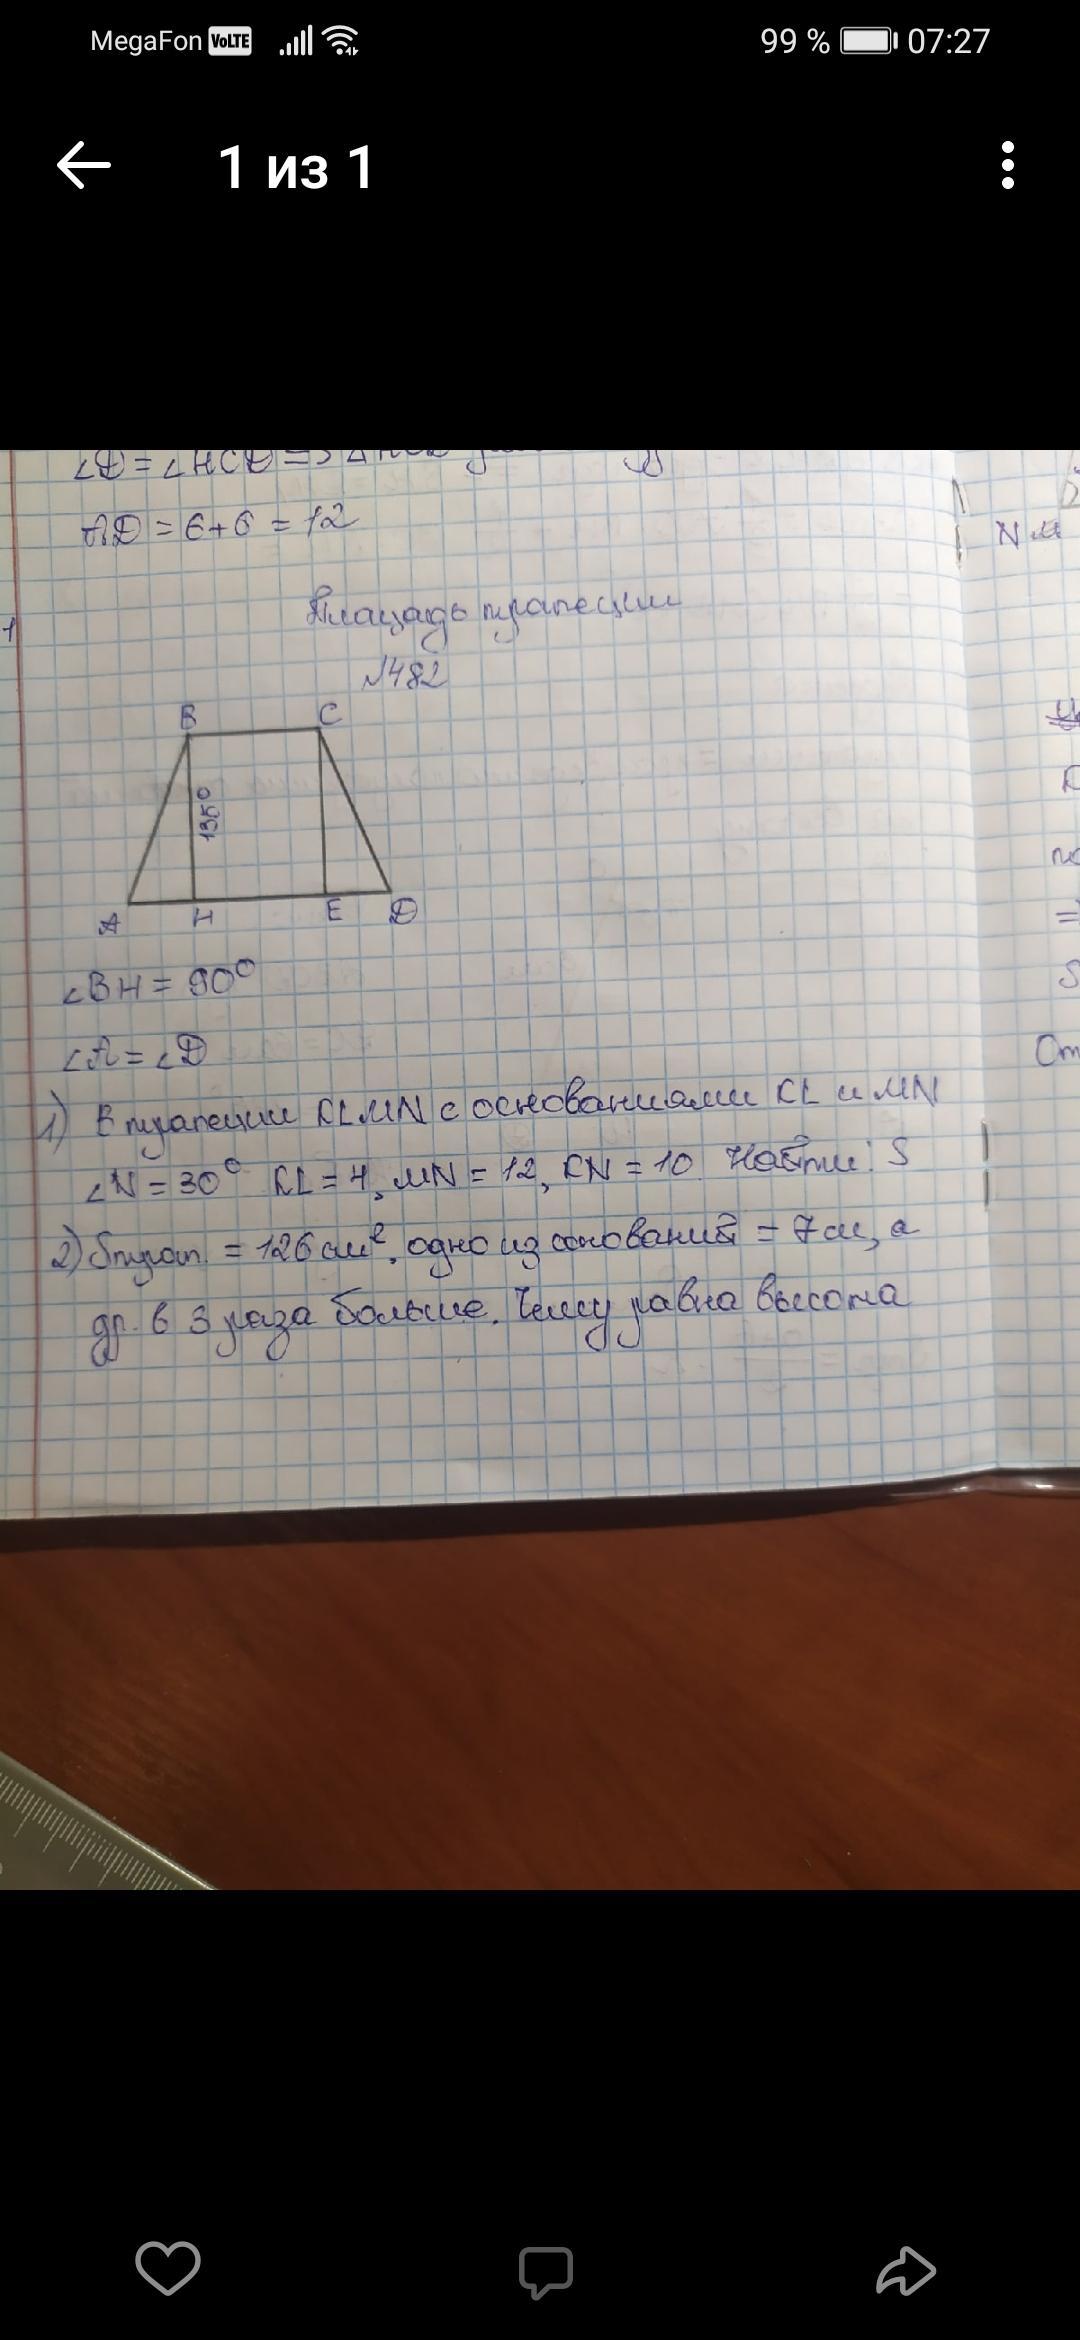 MegaFon VoLTE 99 % 07:27
1 из 1
AD = 6+6 = 12
Площадь трапеции
№482
B C
135°
A H E D
∠BH = 90°
∠A = ∠D
1) В трапеции KLMN с основаниями KL и MN
∠N = 30° KL = 4, MN = 12, KN = 10 Найти: S
2) Sтрап. = 126 см², одно из оснований = 7 см, а
др. в 3 раза больше. Чему равна высота